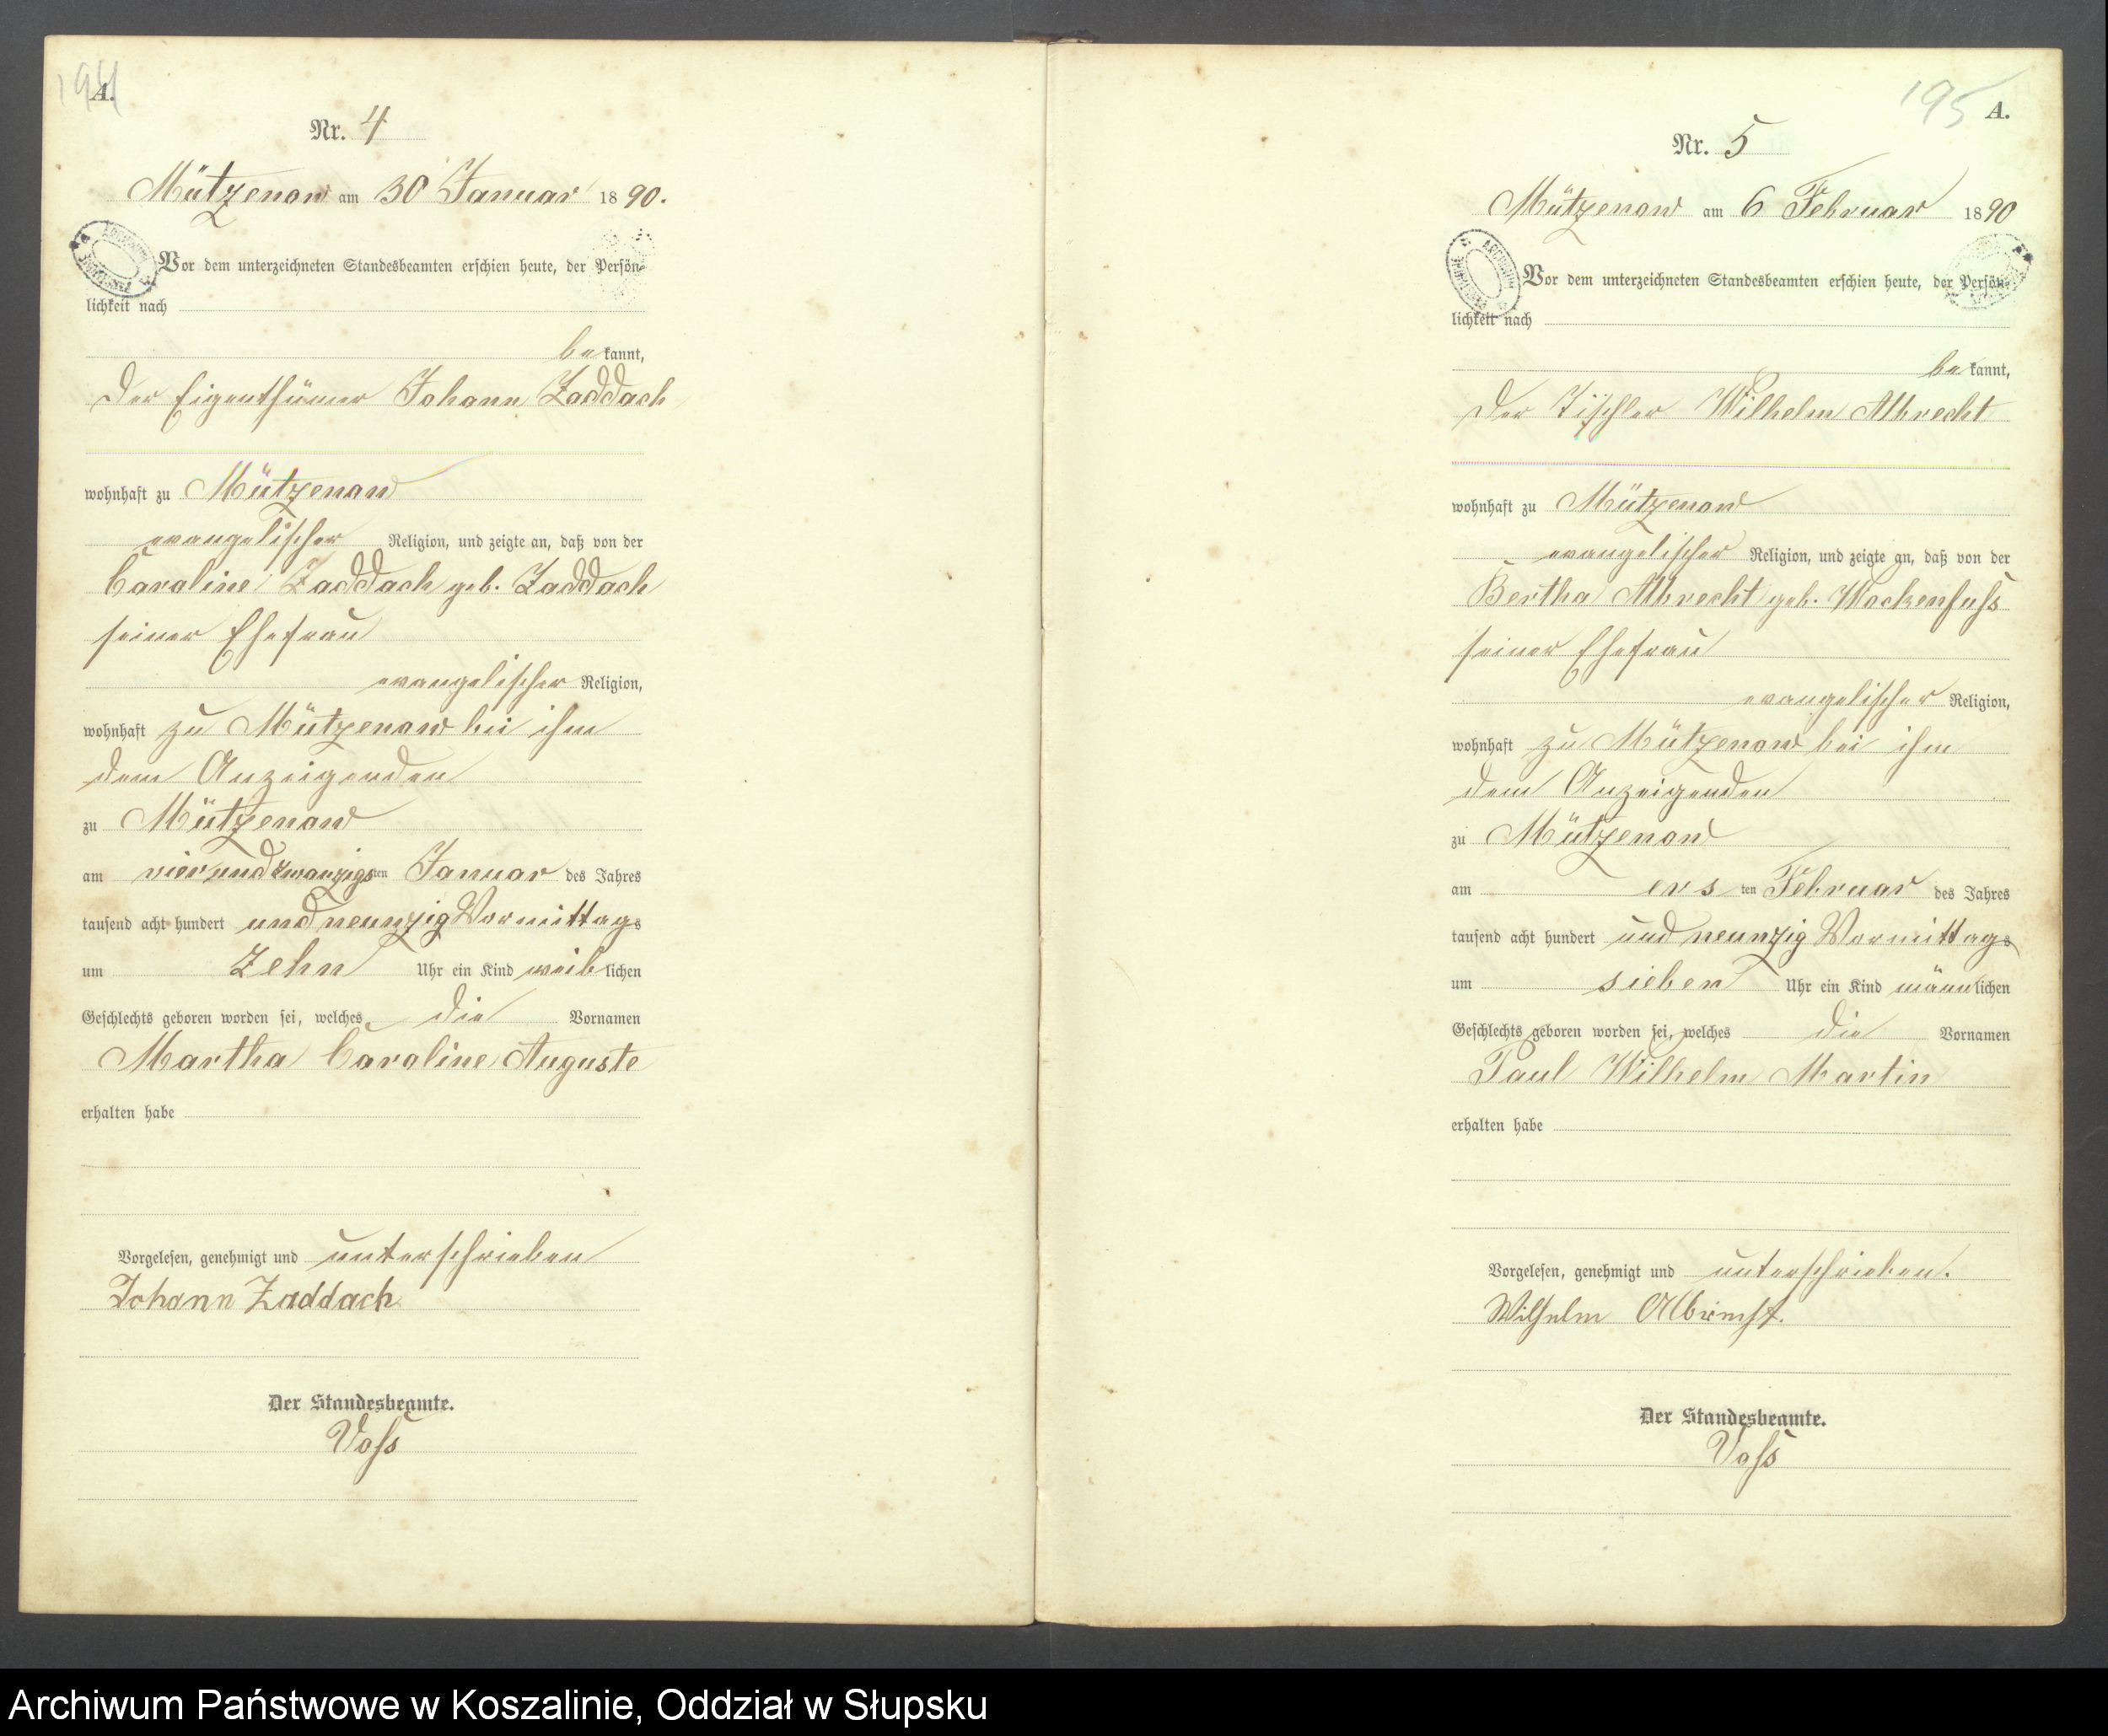 194
A.
Nr. 4
Mützenow am 30 Januar 1890.
Vor dem unterzeichneten Standesbeamten erschien heute, der Persön-
lichkeit nach
bekannt,
der Eigenthümer Johann Zaddach
wohnhaft zu Mützenow
evangelischer Religion, und zeigte an, daß von der
Caroline Zaddach geb. Zaddach
seiner Ehefrau
evangelischer Religion,
wohnhaft zu Mützenow bei ihm
dem Anzeigenden
zu Mützenow
am vierundzwanzigsten Januar des Jahres
tausend acht hundert und neunzig Vormittags
um Zehn Uhr ein Kind weiblichen
Geschlechts geboren worden sei, welches die Vornamen
Martha Caroline Auguste
erhalten habe
Vorgelesen, genehmigt und unterschrieben
Johann Zaddach
Der Standesbeamte.
Voss
195
A.
Nr. 5
Mützenow am 6 Februar 1890
Vor dem unterzeichneten Standesbeamten erschien heute, der Persön-
lichkeit nach
bekannt,
der Tischler Wilhelm Albrecht
wohnhaft zu Mützenow
evangelischer Religion, und zeigte an, daß von der
Bertha Albrecht geb. Wockenfuss
seiner Ehefrau
evangelischer Religion,
wohnhaft zu Mützenow bei ihm
dem Anzeigenden
zu Mützenow
am ersten Februar des Jahres
tausend acht hundert und neunzig Vormittags
um sieben Uhr ein Kind männlichen
Geschlechts geboren worden sei, welches die Vornamen
Paul Wilhelm Martin
erhalten habe
Vorgelesen, genehmigt und unterschrieben.
Wilhelm Albrecht.
Der Standesbeamte.
Voss
Archiwum Państwowe w Koszalinie, Oddział w Słupsku